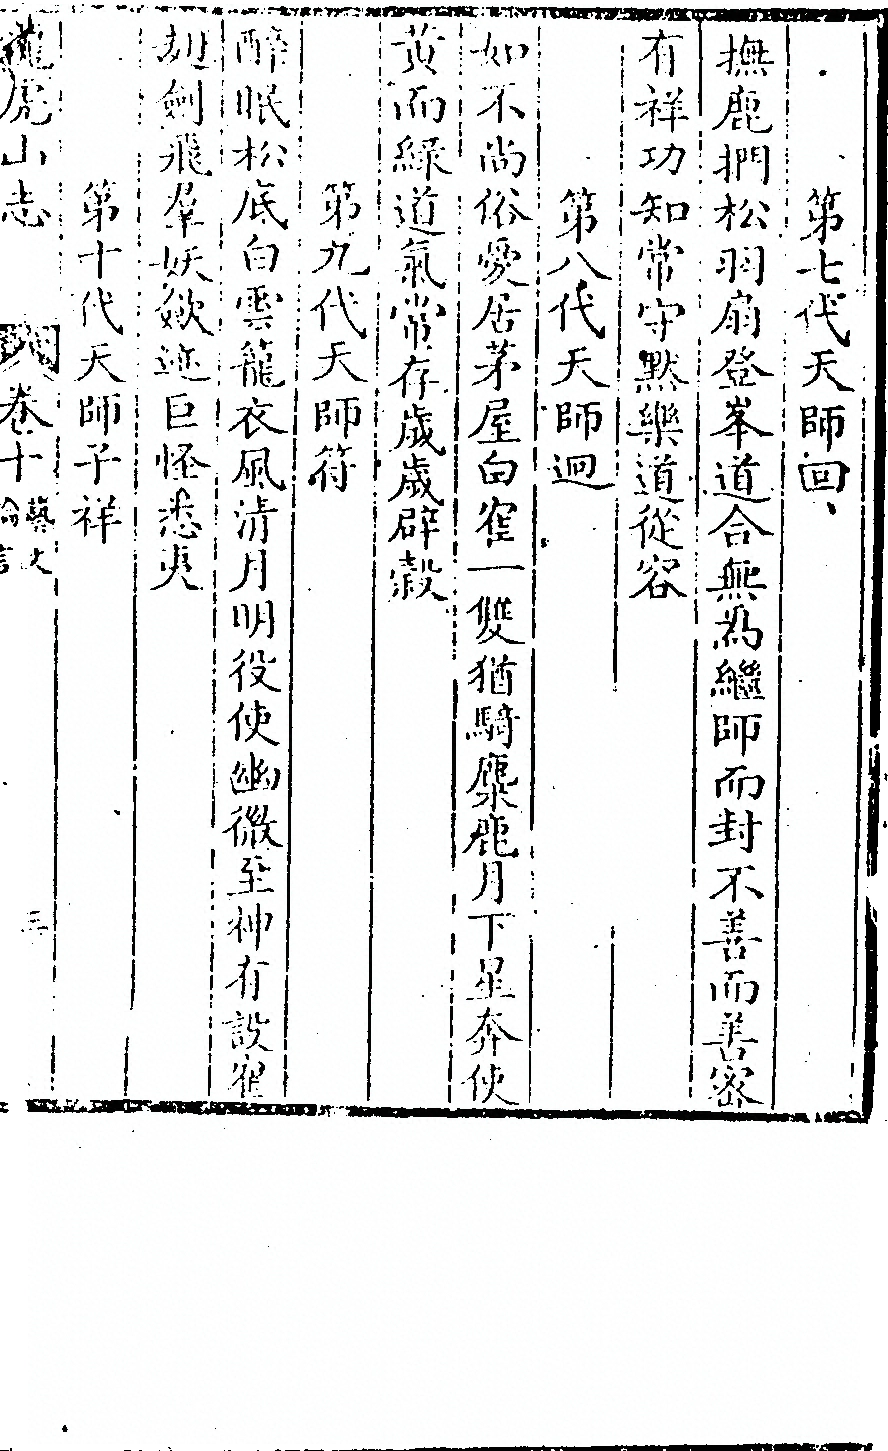 第七代天師回
撫鹿捫松羽扇登峯道合無為繼師而封不善而善密
有祥功知常守黙樂道從容
第八代天師迥
如不尚俗愛居茅屋白寉一雙猶騎麋鹿月下星奔使
黃而綠道氣常存歲歲辟穀
第九代天師符
醉眠松底白雲籠衣風清月明役使幽微至神有設寉
刼劍飛羣妖斂迹巨怪悉夷
第十代天師子祥
龍虎山志 卷十 藝文 三